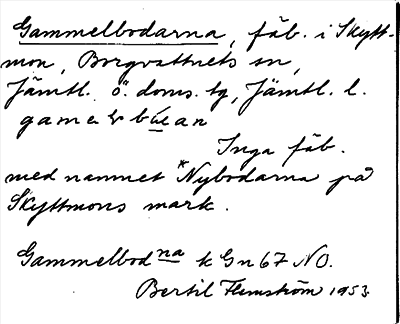 Gammelbodarna, fäb. i Skytt-
mon, Borgvattnets sn,
Jämtl. ö. doms. tg, Jämtl. l.
Inga fäb.
med namnet *Nybodarna på
Skyttmons mark.
Gammelbodna k Gn 67 NO.
Bertil Flemström 1953